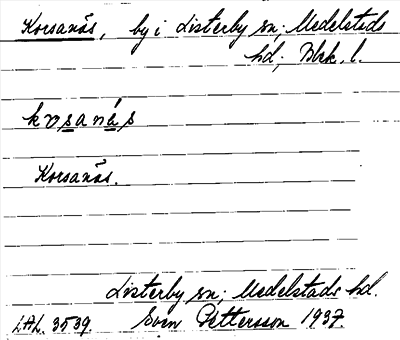 Korsanäs, by i Listerby sn; Medelstads
hd; Blek. l.
kơsanás
Korsanäs.
Listerby sn; Medelstads hd.
LAL. 3539. Sven Pettersson 1937.